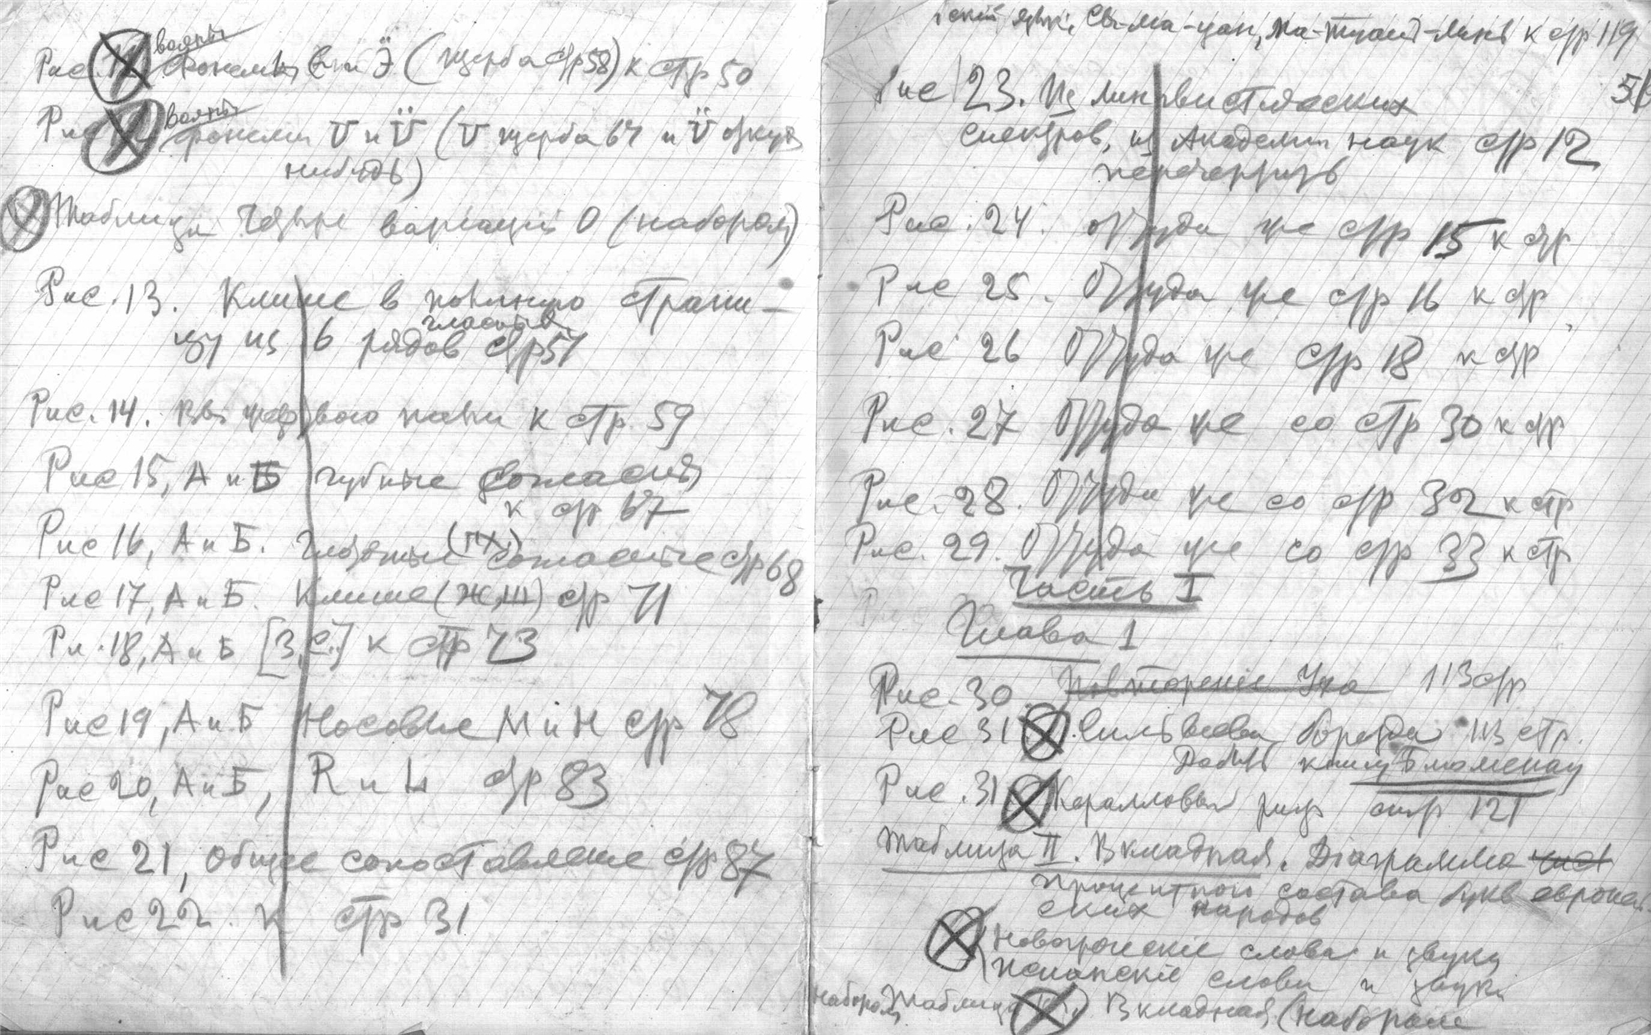 Рис. фонемы и Ӭ (Щерба стр 58) к стр 50
Рис фонемы U и Ü (U Щерба 64 и Ü откуда
нибудь)
Таблица вариаций О (набором)
Рис. 13. Клише в полную страни-
цу из 6 рядов гласных стр 51
Рис. 14. к стр. 59
Рис 15, А и Б губные согласные
к стр 67
Рис 16, А и Б. (ГХ) согласные стр 68
Рис 17, А и Б. Клише (Ж,Ш) стр 71
Ри. 18, А и Б [З,С.] к стр 73
Рис 19, А и Б Носовые М и Н стр 78
Рис 20, А и Б, R и L стр 83
Рис 21, Общее сопоставление стр 87
Рис 22 к стр 31
Сы-ма-цян, Ма-туан-линь к стр 119
Рис 23. Из лингвистических
спектров, из Академии наук стр 12
Рис. 24. Оттуда же стр 15 к стр
Рис 25. Оттуда же стр 16 к стр
Рис 26 Оттуда же стр 18 к стр
Рис. 27 Оттуда же со стр 30 к стр
Рис. 28. Оттуда же со стр 32 к стр
Рис. 29. Оттуда же со стр 33 к стр
Часть I
Глава I
Рис. 30 Повторение Уха 113 стр
Рис 31 Сильвиева борозда 113 стр.
книгу
Рис. 31 Коралловый риф стр 121
Таблица II. Вкладная. Диаграмма
процентного состава букв европей
ских народов
Новогреческие слова и звуки
Испанские слова и звуки
набором Таблица Вкладная (набором